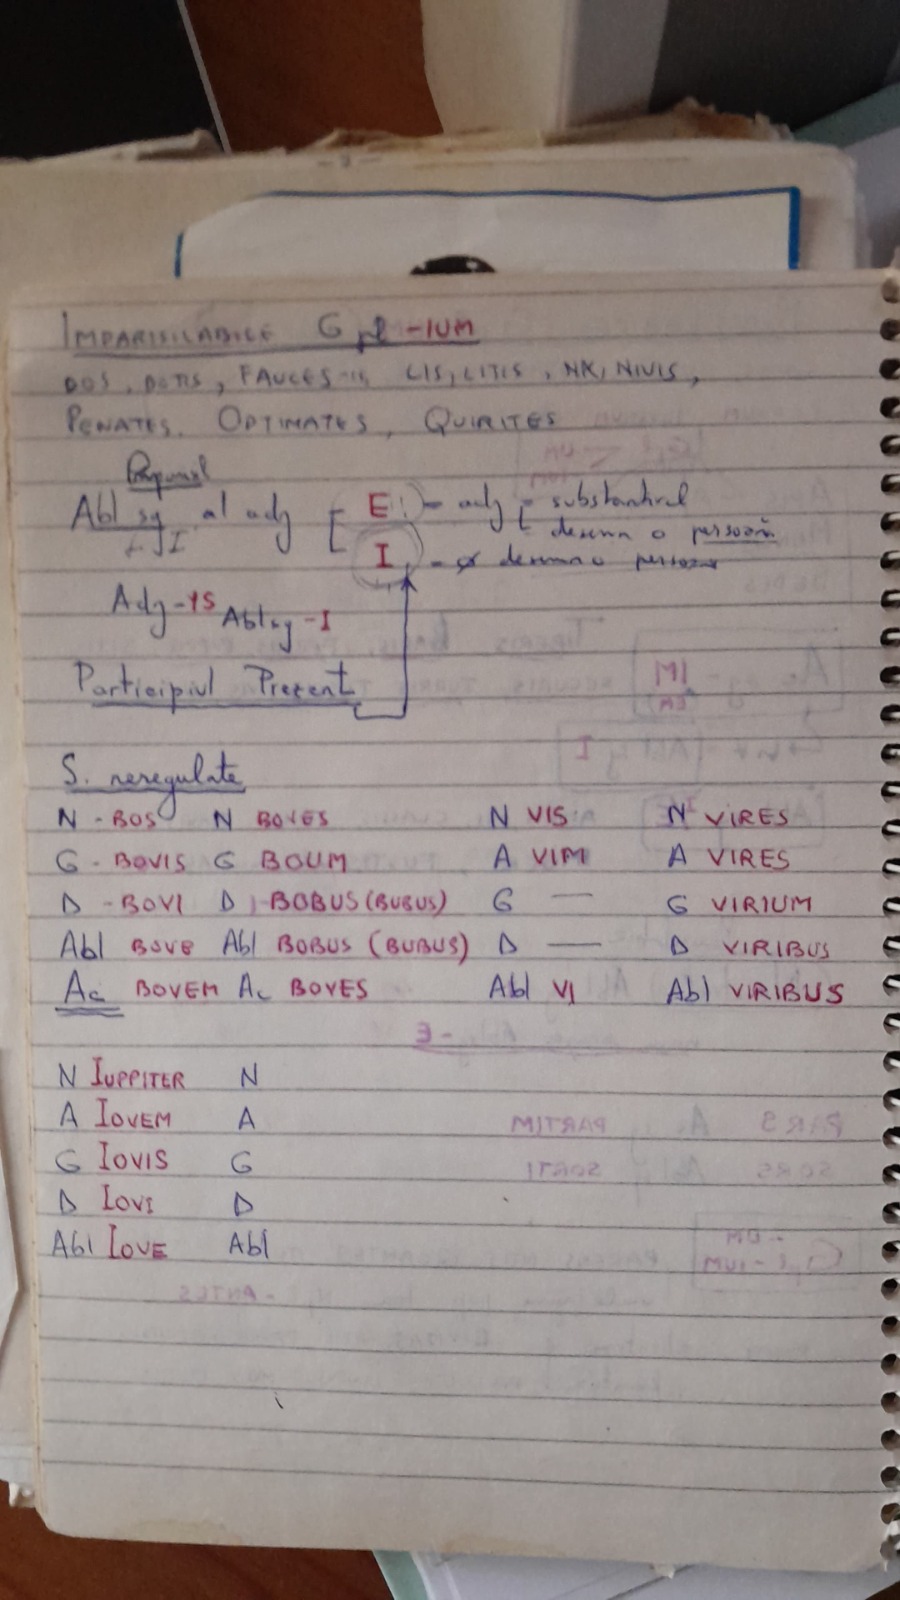 IMPARISILABILE G pl -IUM
DOS, DOTIS, FAUCES-IS, LIS, LITIS, NIX, NIVIS,
PENATES, OPTIMATES, QUIRITES
Abl sg al adj [ E - adj [ substantival
desemn o persoană
I - desemn o persoană
Adj -IS Abl sg -I
Participiul Prezent
S. neregulate
N - BOS N BOVES N VIS N VIRES
G - BOVIS G BOUM A VIM A VIRES
D - BOVI D - BOBUS (BUBUS) G — G VIRIUM
Abl BOVE Abl BOBUS (BUBUS) D — D VIRIBUS
Ac BOVEM Ac BOVES Abl VI Abl VIRIBUS
N IUPPITER N
A IOVEM A
G IOVIS G
D IOVI D
Abl IOVE Abl